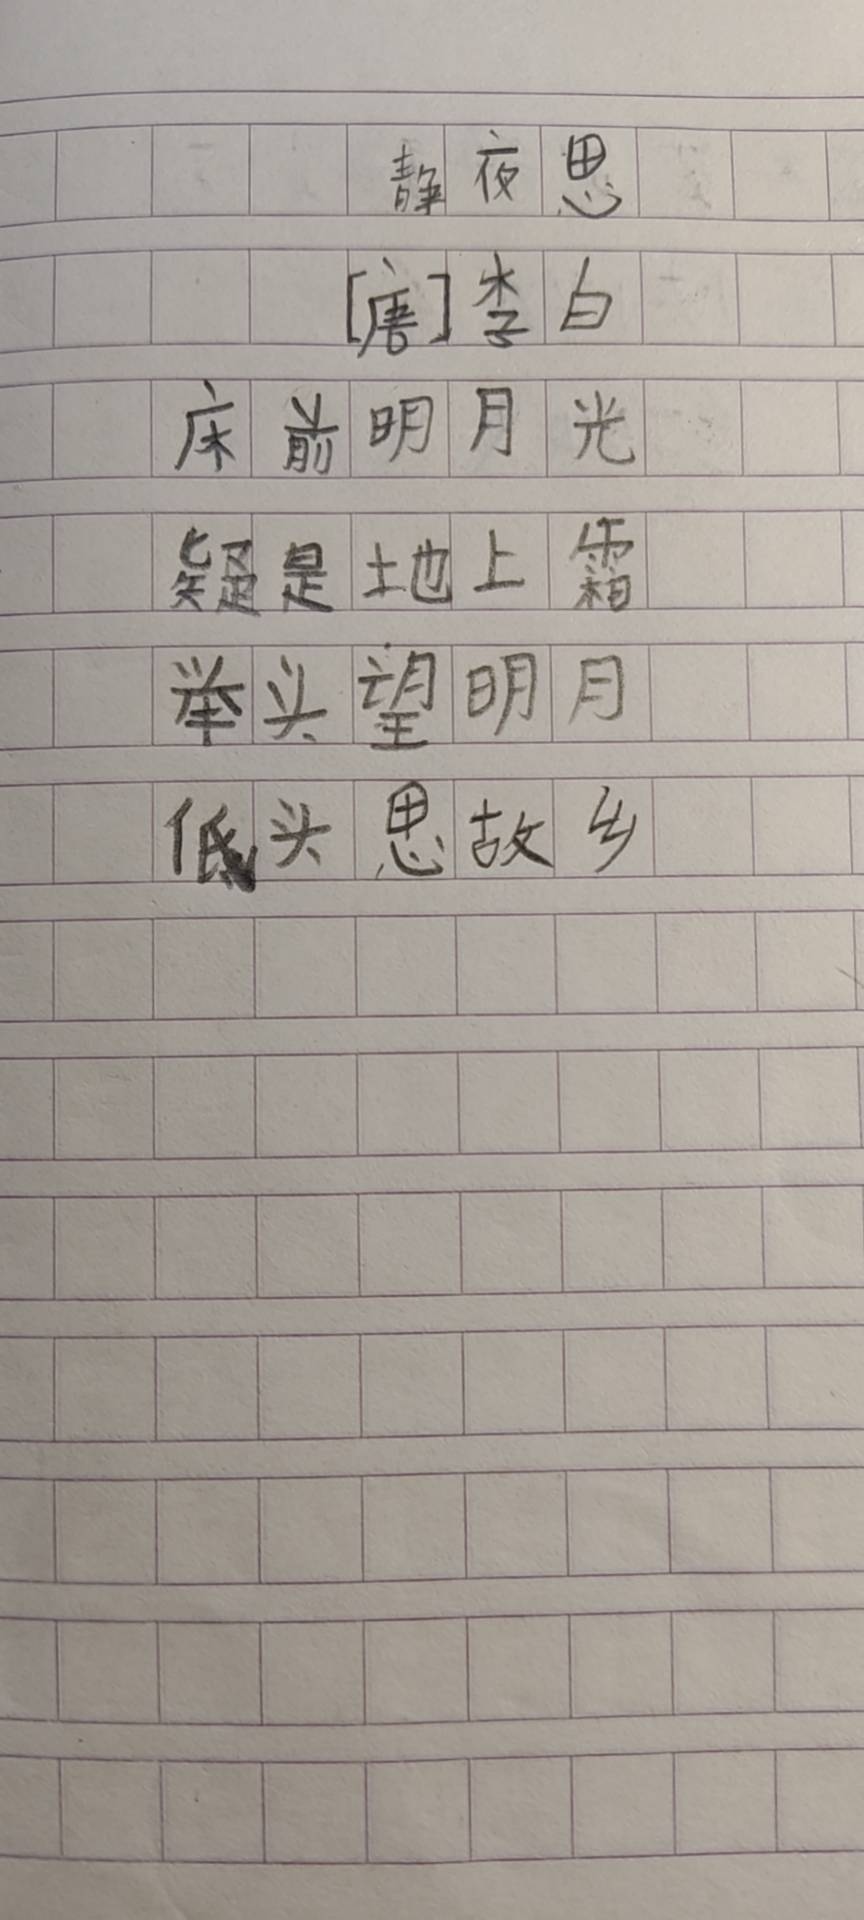 静夜思
[唐]李白
床前明月光
疑是地上霜
举头望明月
低头思故乡